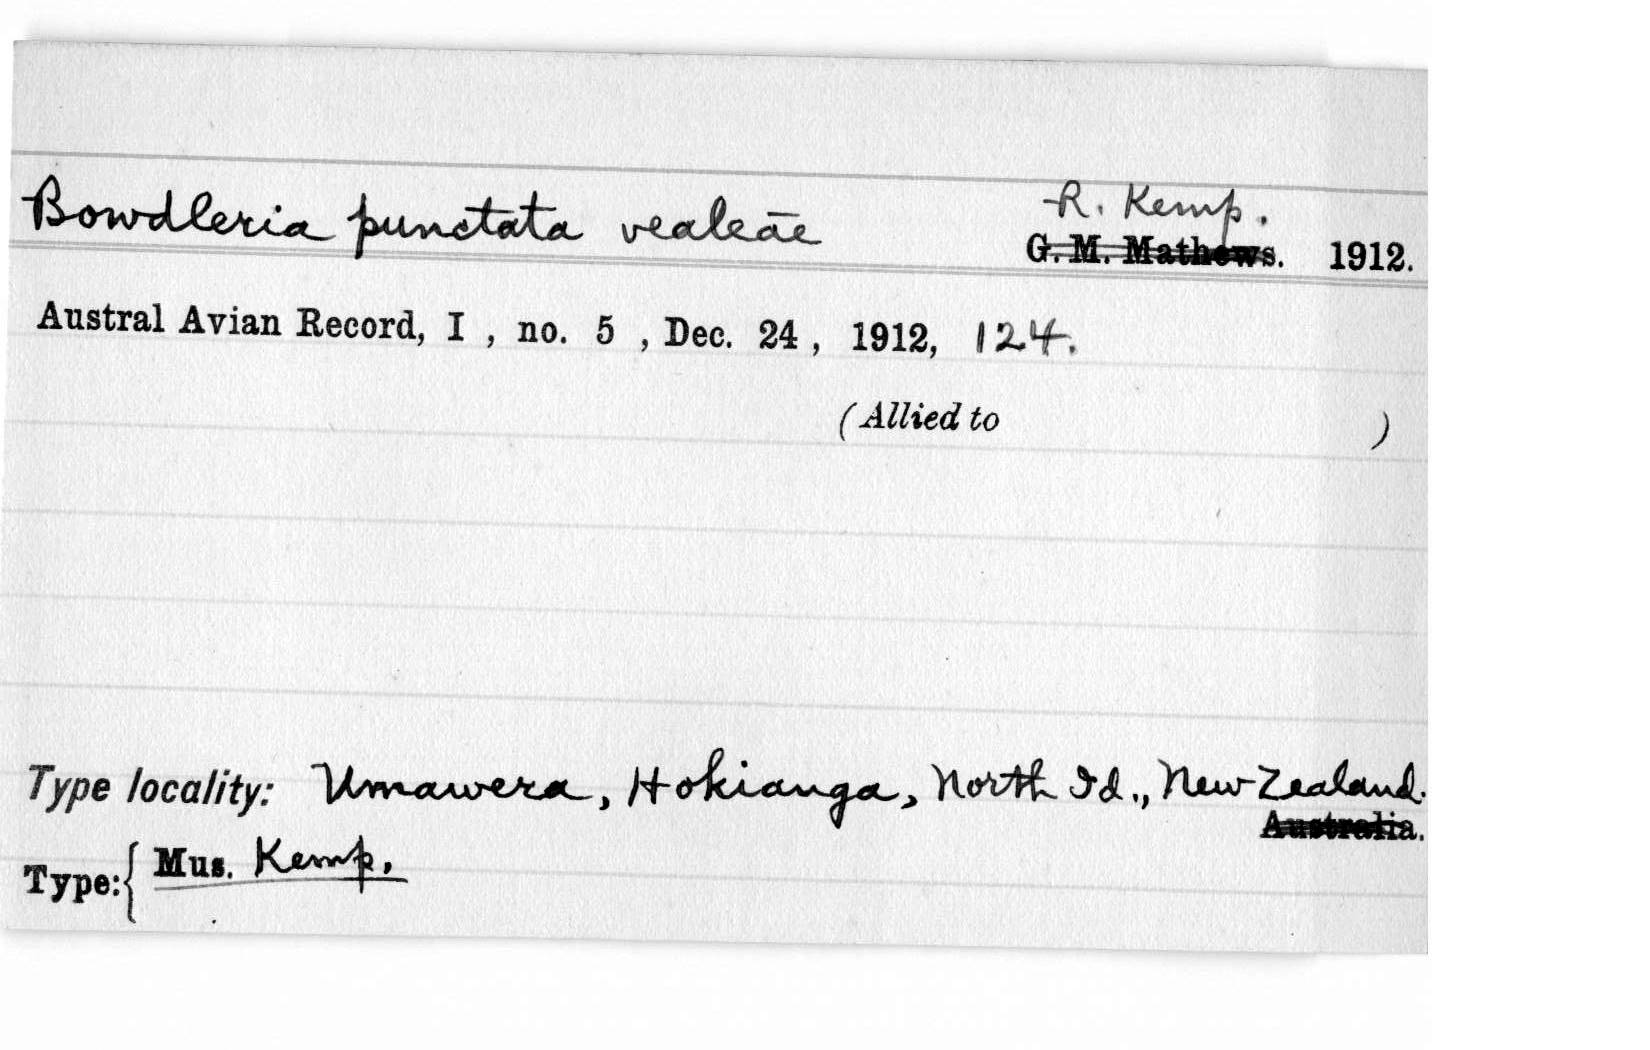 Bowdleria punctata vealeae R. Kemp.
G. M. Mathews. 1912.
Austral Avian Record, I , no. 5 , Dec. 24 , 1912, 124.
(Allied to )
Type locality: Umawera, Hokianga, North Id., New Zealand.
Australia.
Type:{ Mus. Kemp.